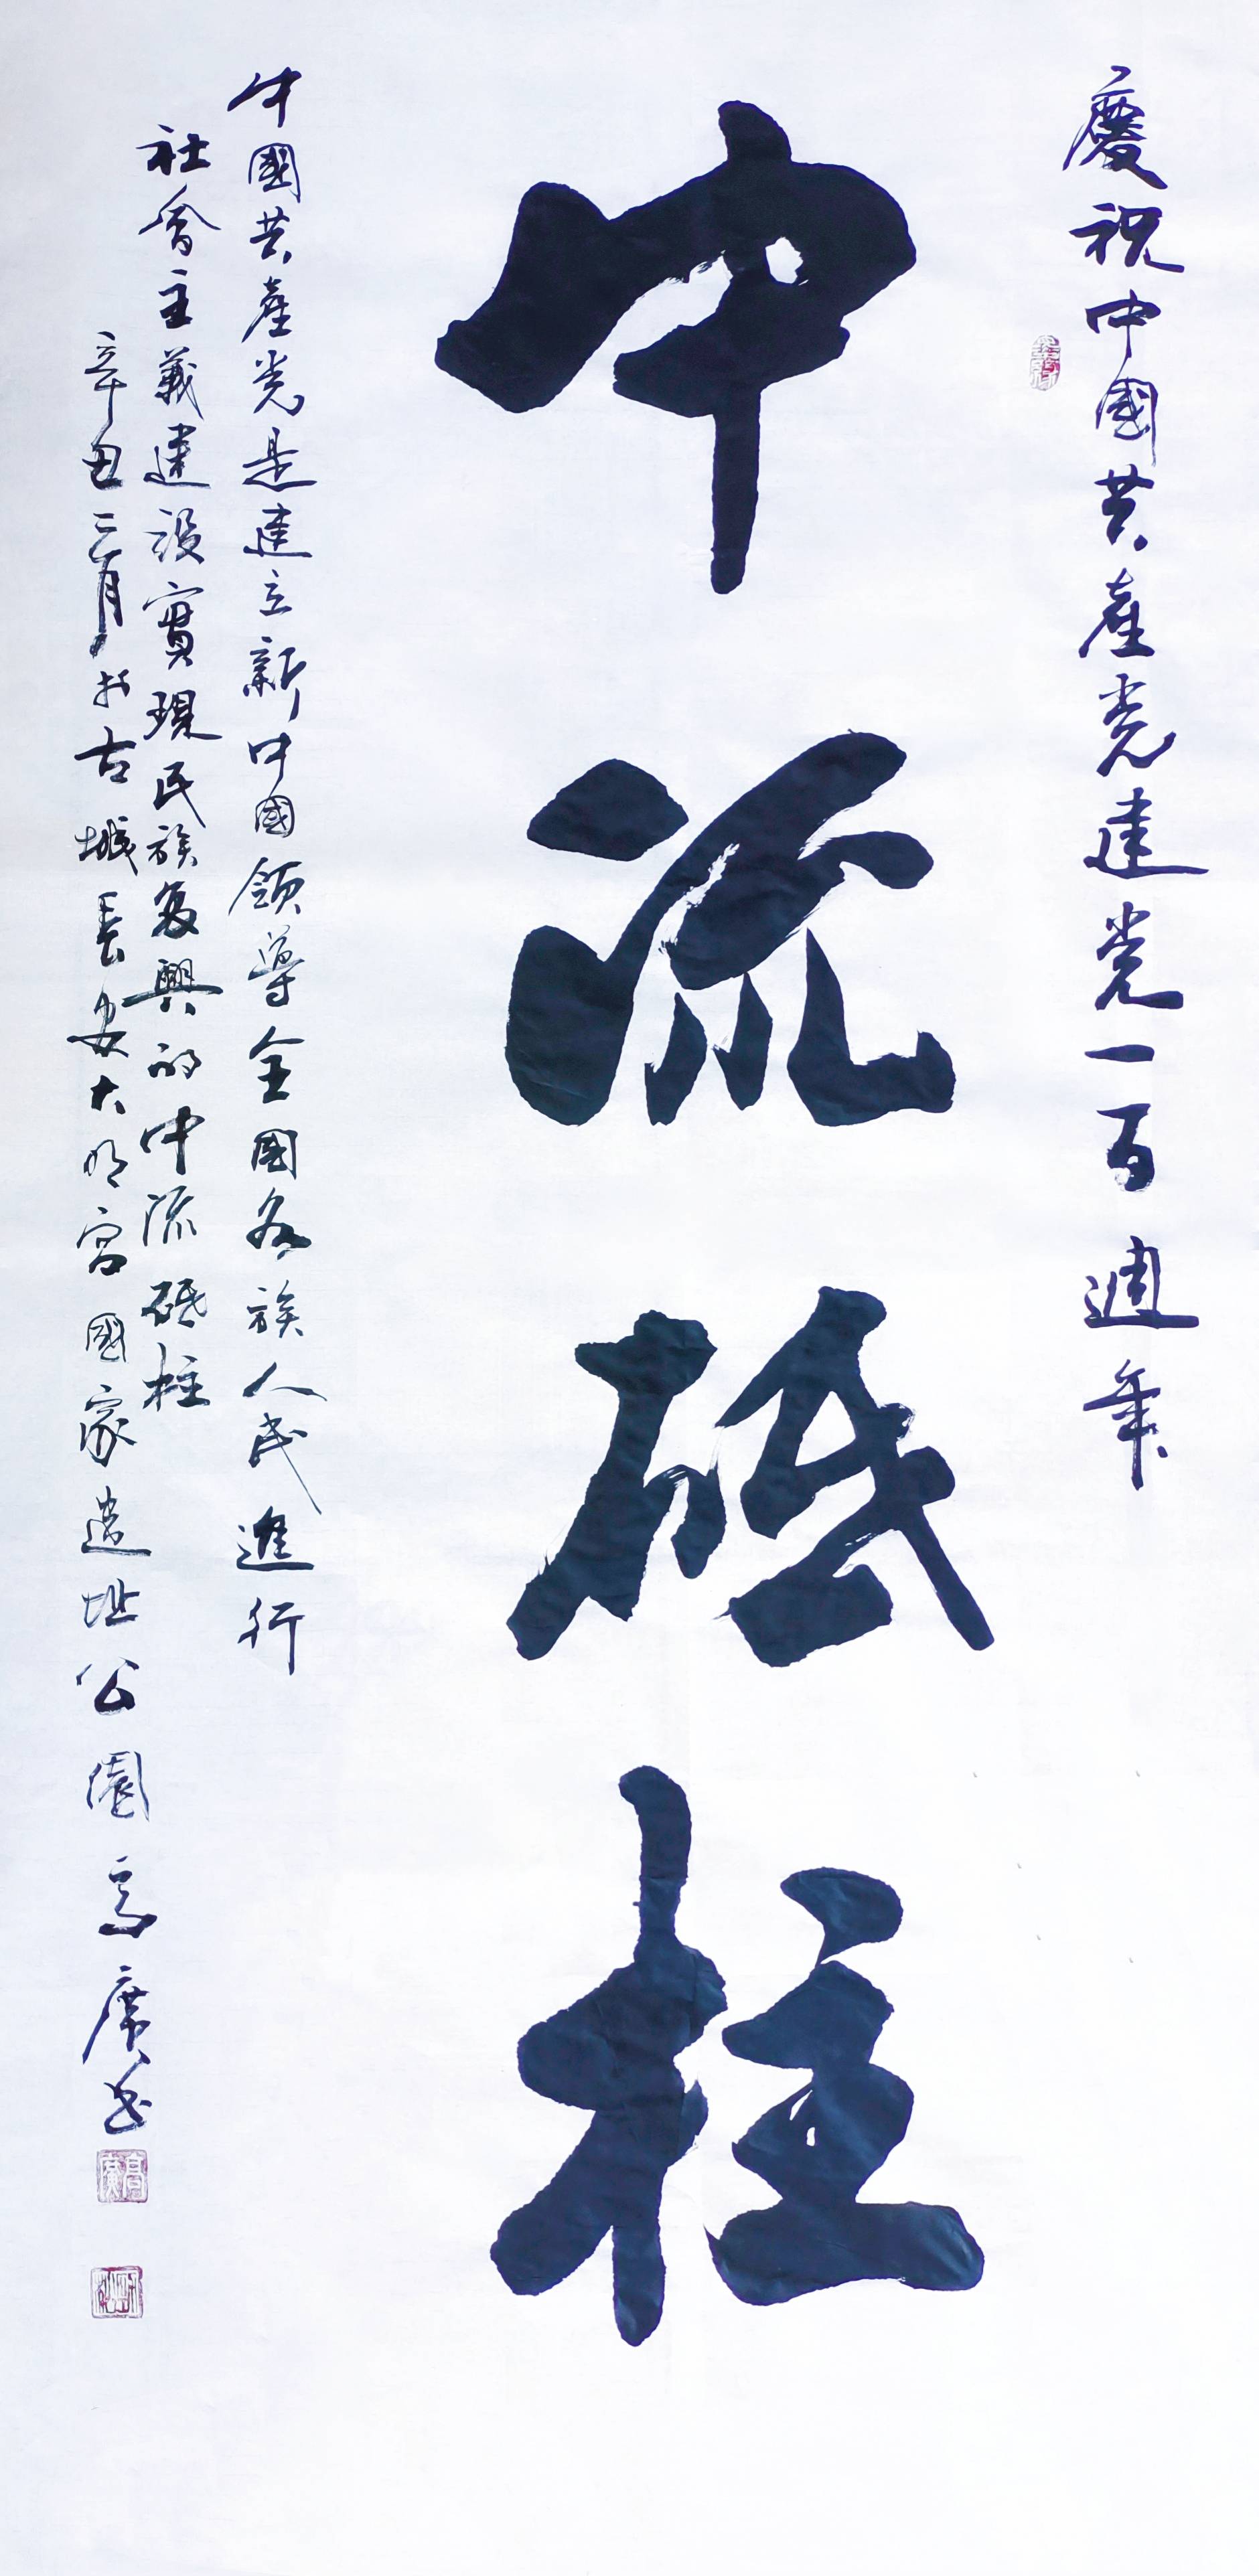 慶祝中國共產党建党一百週年
中流砥柱
中國共產党是建立新中國領導全國各族人民進行
社會主義建設實現民族复興的中流砥柱
辛丑三月於古城長安大明宮國家遺址公園高廣书
高廣